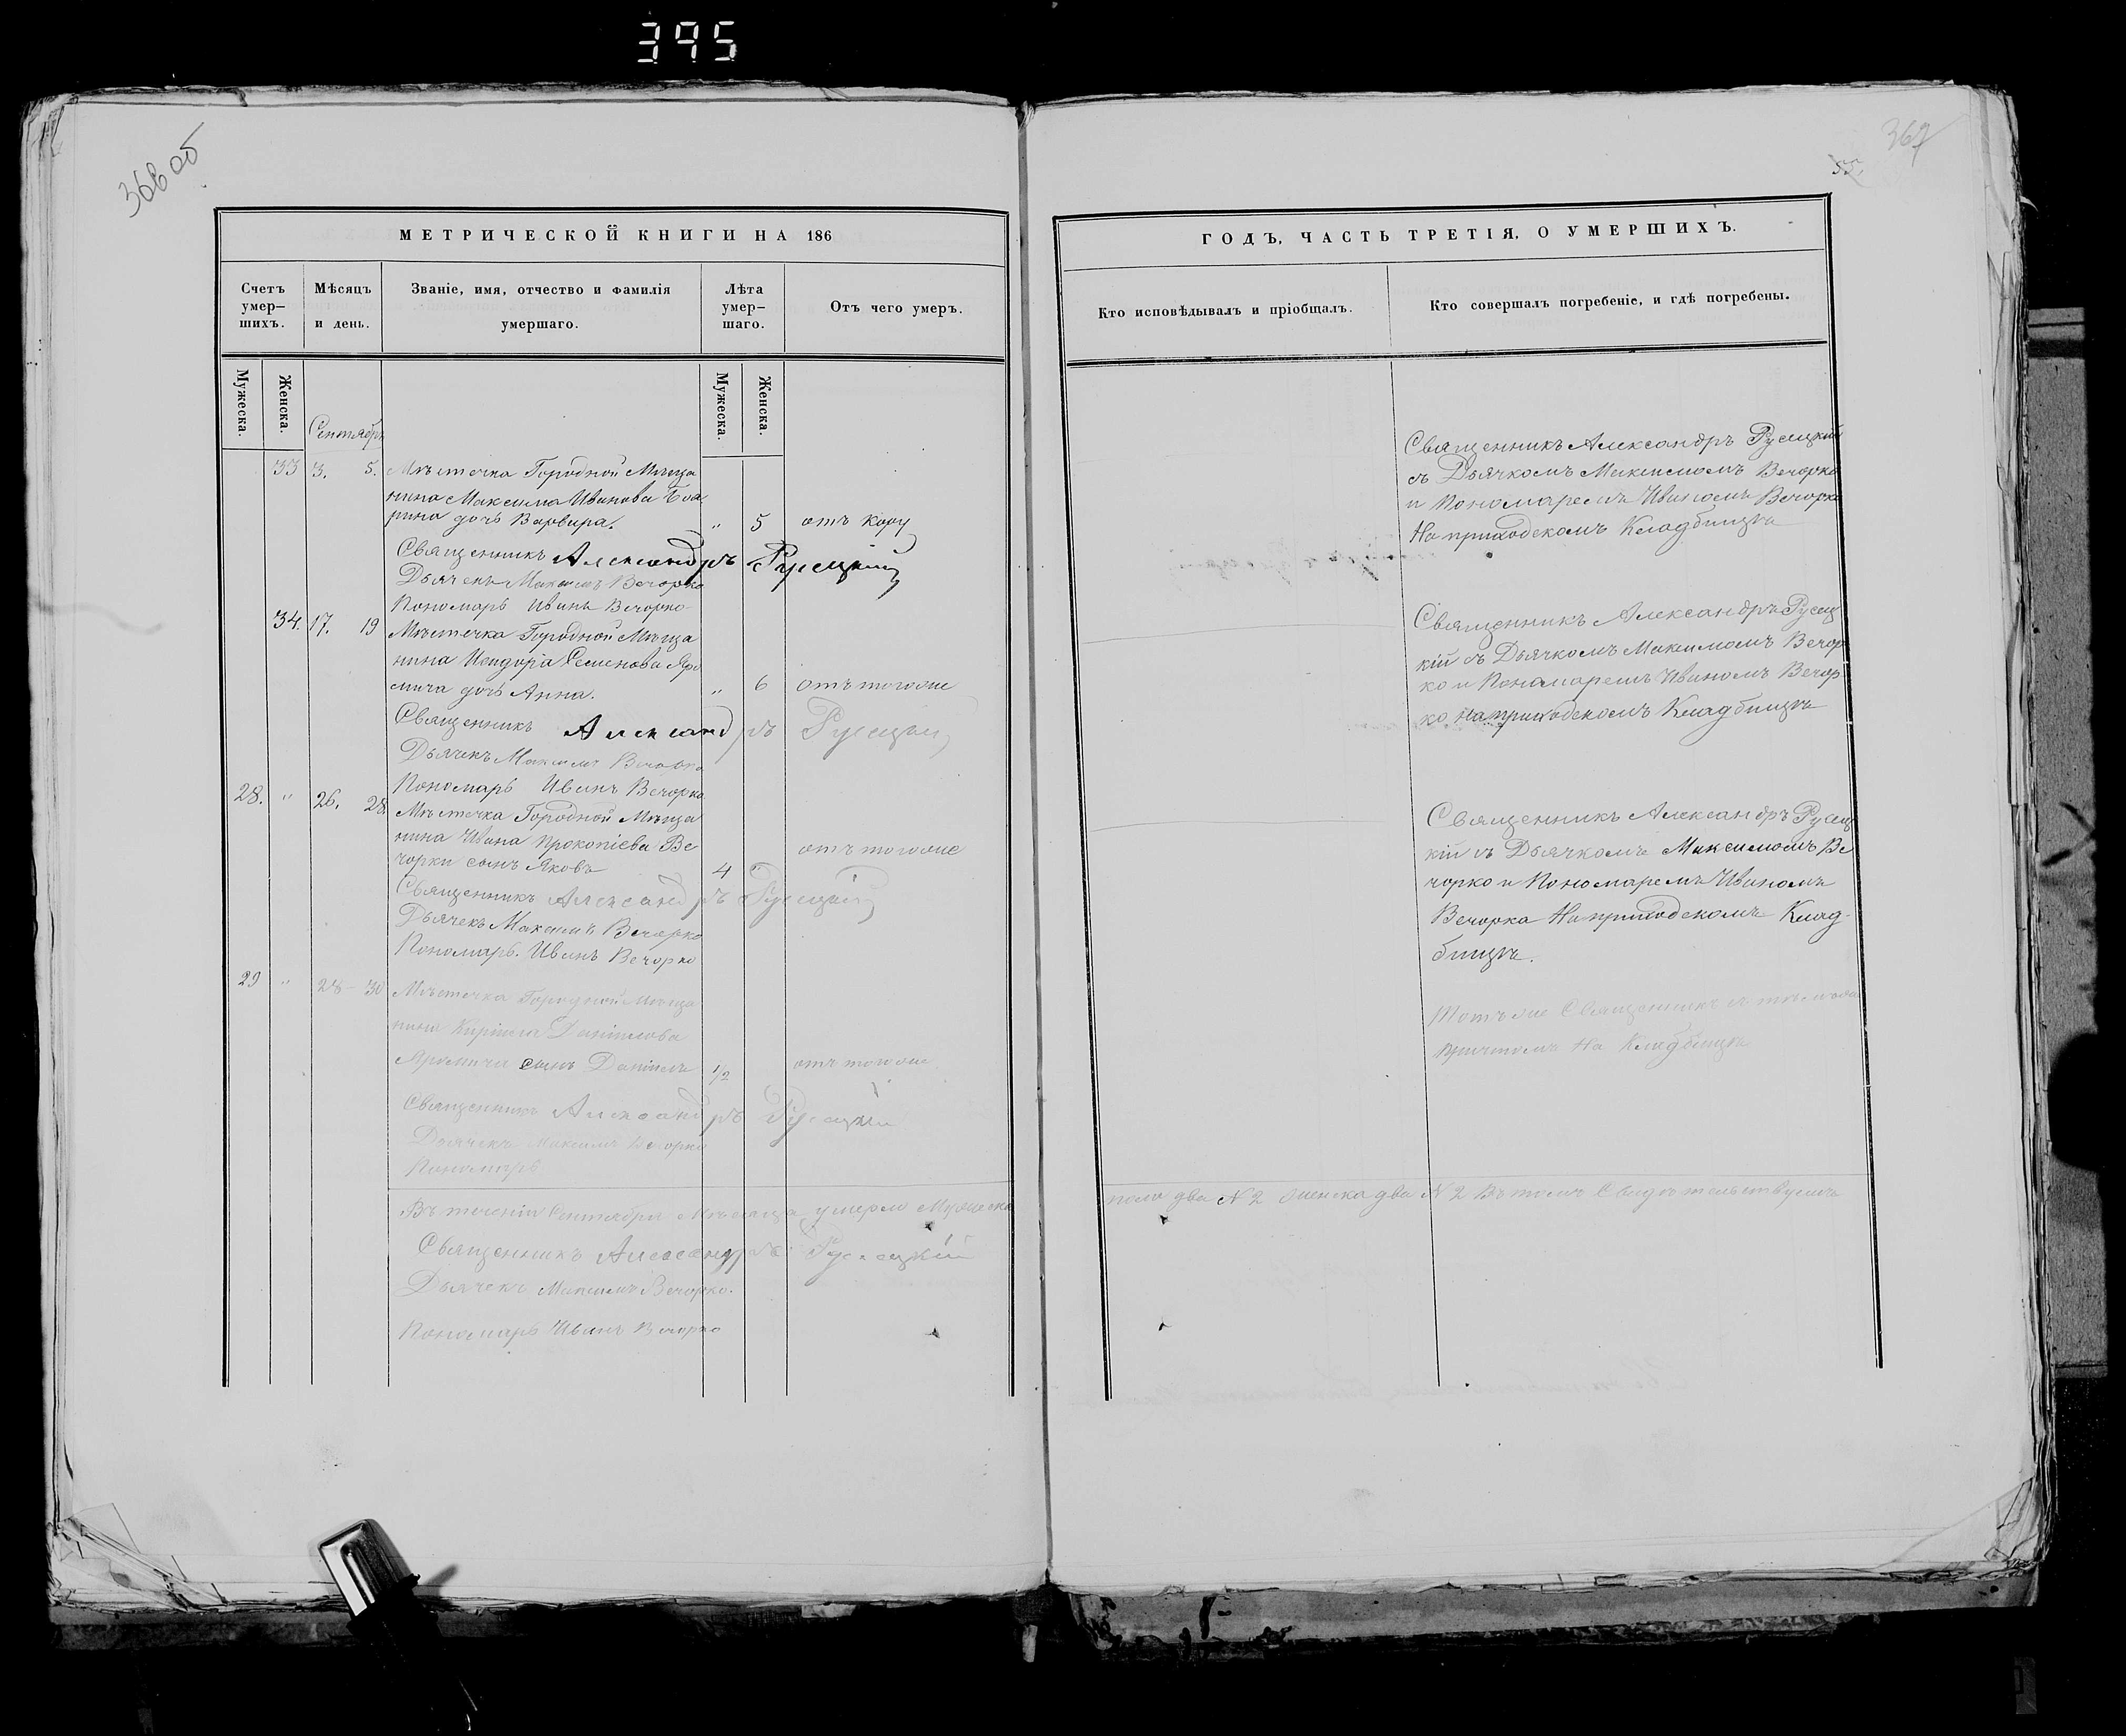 395
366 об
367
55.
МЕТРИЧЕСКОЙ КНИГИ НА 186
Счетъ умер-шихъ.
Мѣсяцъ и день.
Званіе, имя, отчество и фамилія умершаго.
Лѣта умер-шаго.
Отъ чего умеръ.
Мужеска.
Женска.
Мужеска.
Женска.
Сентябрь
33 3. 5. Мѣстечка Городной Мѣща
нина Максима Иванова Боя
рина дочь Варвара. „ 5 отъ кору
Священникъ Александръ Русецкій
Дьячекъ Максимъ Вечорко
Пономарь Иванъ Вечорко
34. 17. 19 Мѣстечка Городной Мѣща
нина Исидора Семенова Яро
мича дочь Анна. „ 6 отъ тогоже
Священникъ Александръ Русецкій
Дьячекъ Максимъ Вечорко
Пономарь Иванъ Вечорко
28. „ 26. 28. Мѣстечка Городной Мѣща
нина Ивана Прокопіева Ве
чорки сынъ Яковъ 4 „ отъ тогоже
Священникъ Александръ Русецкій
Дьячекъ Максимъ Вечорко
Пономарь. Иванъ Вечорко
29 „ 28 30 Мѣстечка Городной Мѣща
нина Кирила Даніилова
Яромича сынъ Даніилъ 1/2 отъ тогоже
Священникъ Александръ Русецкій
Дьячекъ Максимъ Вечорко
Пономарь
Въ теченіи Сентября Мѣсяца умерло Мужеска
Священникъ Александръ Русецкій
Дьячекъ Максимъ Вечорко.
Пономарь Иванъ Вечорко
ГОДЪ, ЧАСТЬ ТРЕТІЯ, О УМЕРШИХЪ.
Кто исповѣдывалъ и пріобщалъ.
Кто совершалъ погребеніе, и гдѣ погребены.
Священникъ Александръ Русецкій
съ Дьячкомъ Максимомъ Вечорко
и Пономаремъ Иваномъ Вечорко
На приходскомъ Кладбищѣ
Священникъ Александръ Русец
кій съ Дьячкомъ Максимомъ Вечор
ко и Пономаремъ Иваномъ Вечор
ко на приходскомъ Кладбищѣ
Священникъ Александръ Русец
кій съ Дьячкомъ Максимомъ Ве
чорко и Пономаремъ Иваномъ
Вечорка На приходскомъ Клад-
бищѣ.
Тотъ же Священникъ съ тѣмъ же
причтомъ На Кладбищѣ
пола два № 2 Женска два № 2 Въ томъ Свидѣтельствуемъ